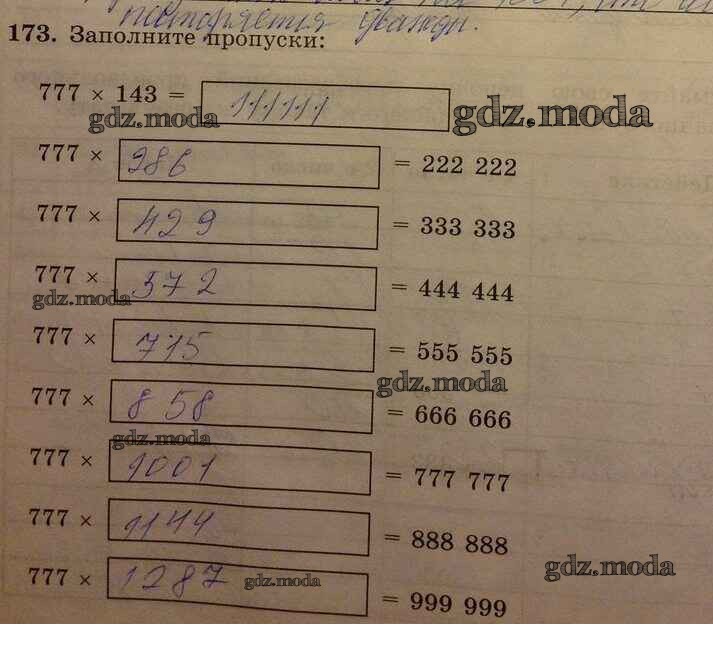 повторяется дважды.
173. Заполните пропуски:
777 × 143 = 111111
gdz.moda gdz.moda
777 × 286 = 222 222
777 × 429 = 333 333
777 × 572 = 444 444
gdz.moda
777 × 715 = 555 555
gdz.moda
777 × 858 = 666 666
gdz.moda
777 × 1001 = 777 777
777 × 1144 = 888 888
gdz.moda
777 × 1287 = 999 999
gdz.moda